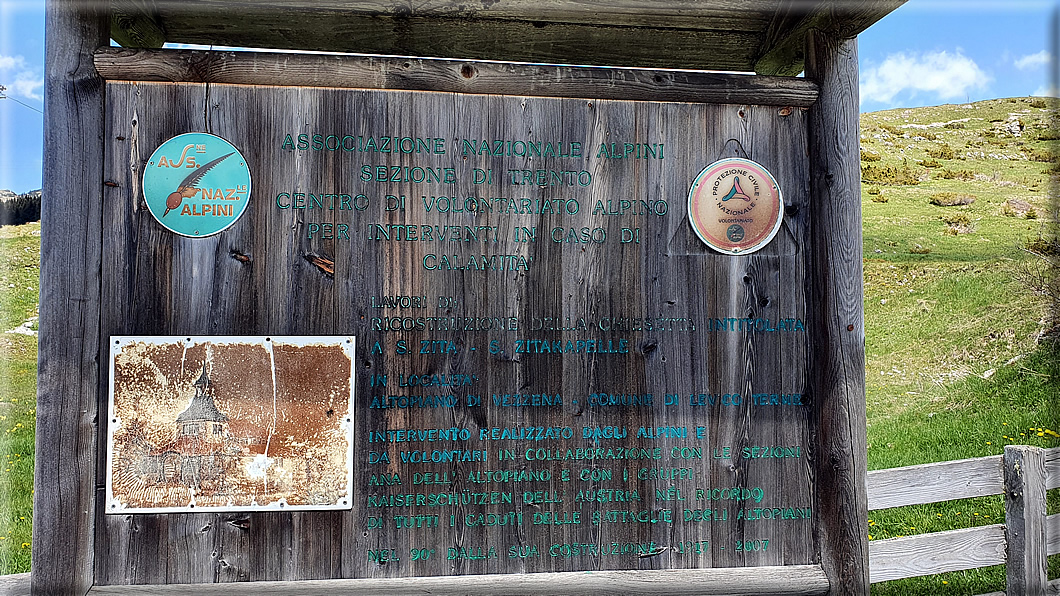 ASS.NE
NAZ.LE
ALPINI
PROTEZIONE CIVILE
NAZIONALE
VOLONTARIATO
ASSOCIAZIONE NAZIONALE ALPINI
SEZIONE DI TRENTO
CENTRO DI VOLONTARIATO ALPINO
PER INTERVENTI IN CASO DI
CALAMITA'
LAVORI DI
RICOSTRUZIONE DELLA CHIESETTA INTITOLATA
A S. ZITA - S. ZITAKAPELLE
IN LOCALITA'
ALTOPIANO DI VEZZENA - COMUNE DI LEVICO TERME
INTERVENTO REALIZZATO DAGLI ALPINI E
DA VOLONTARI IN COLLABORAZIONE CON LE SEZIONI
ANA DELL'ALTOPIANO E CON I GRUPPI
KAISERSCHÜTZEN DELL'AUSTRIA NEL RICORDO
DI TUTTI I CADUTI DELLE BATTAGLIE DEGLI ALTOPIANI
NEL 90° DALLA SUA COSTRUZIONE 1917 - 2007